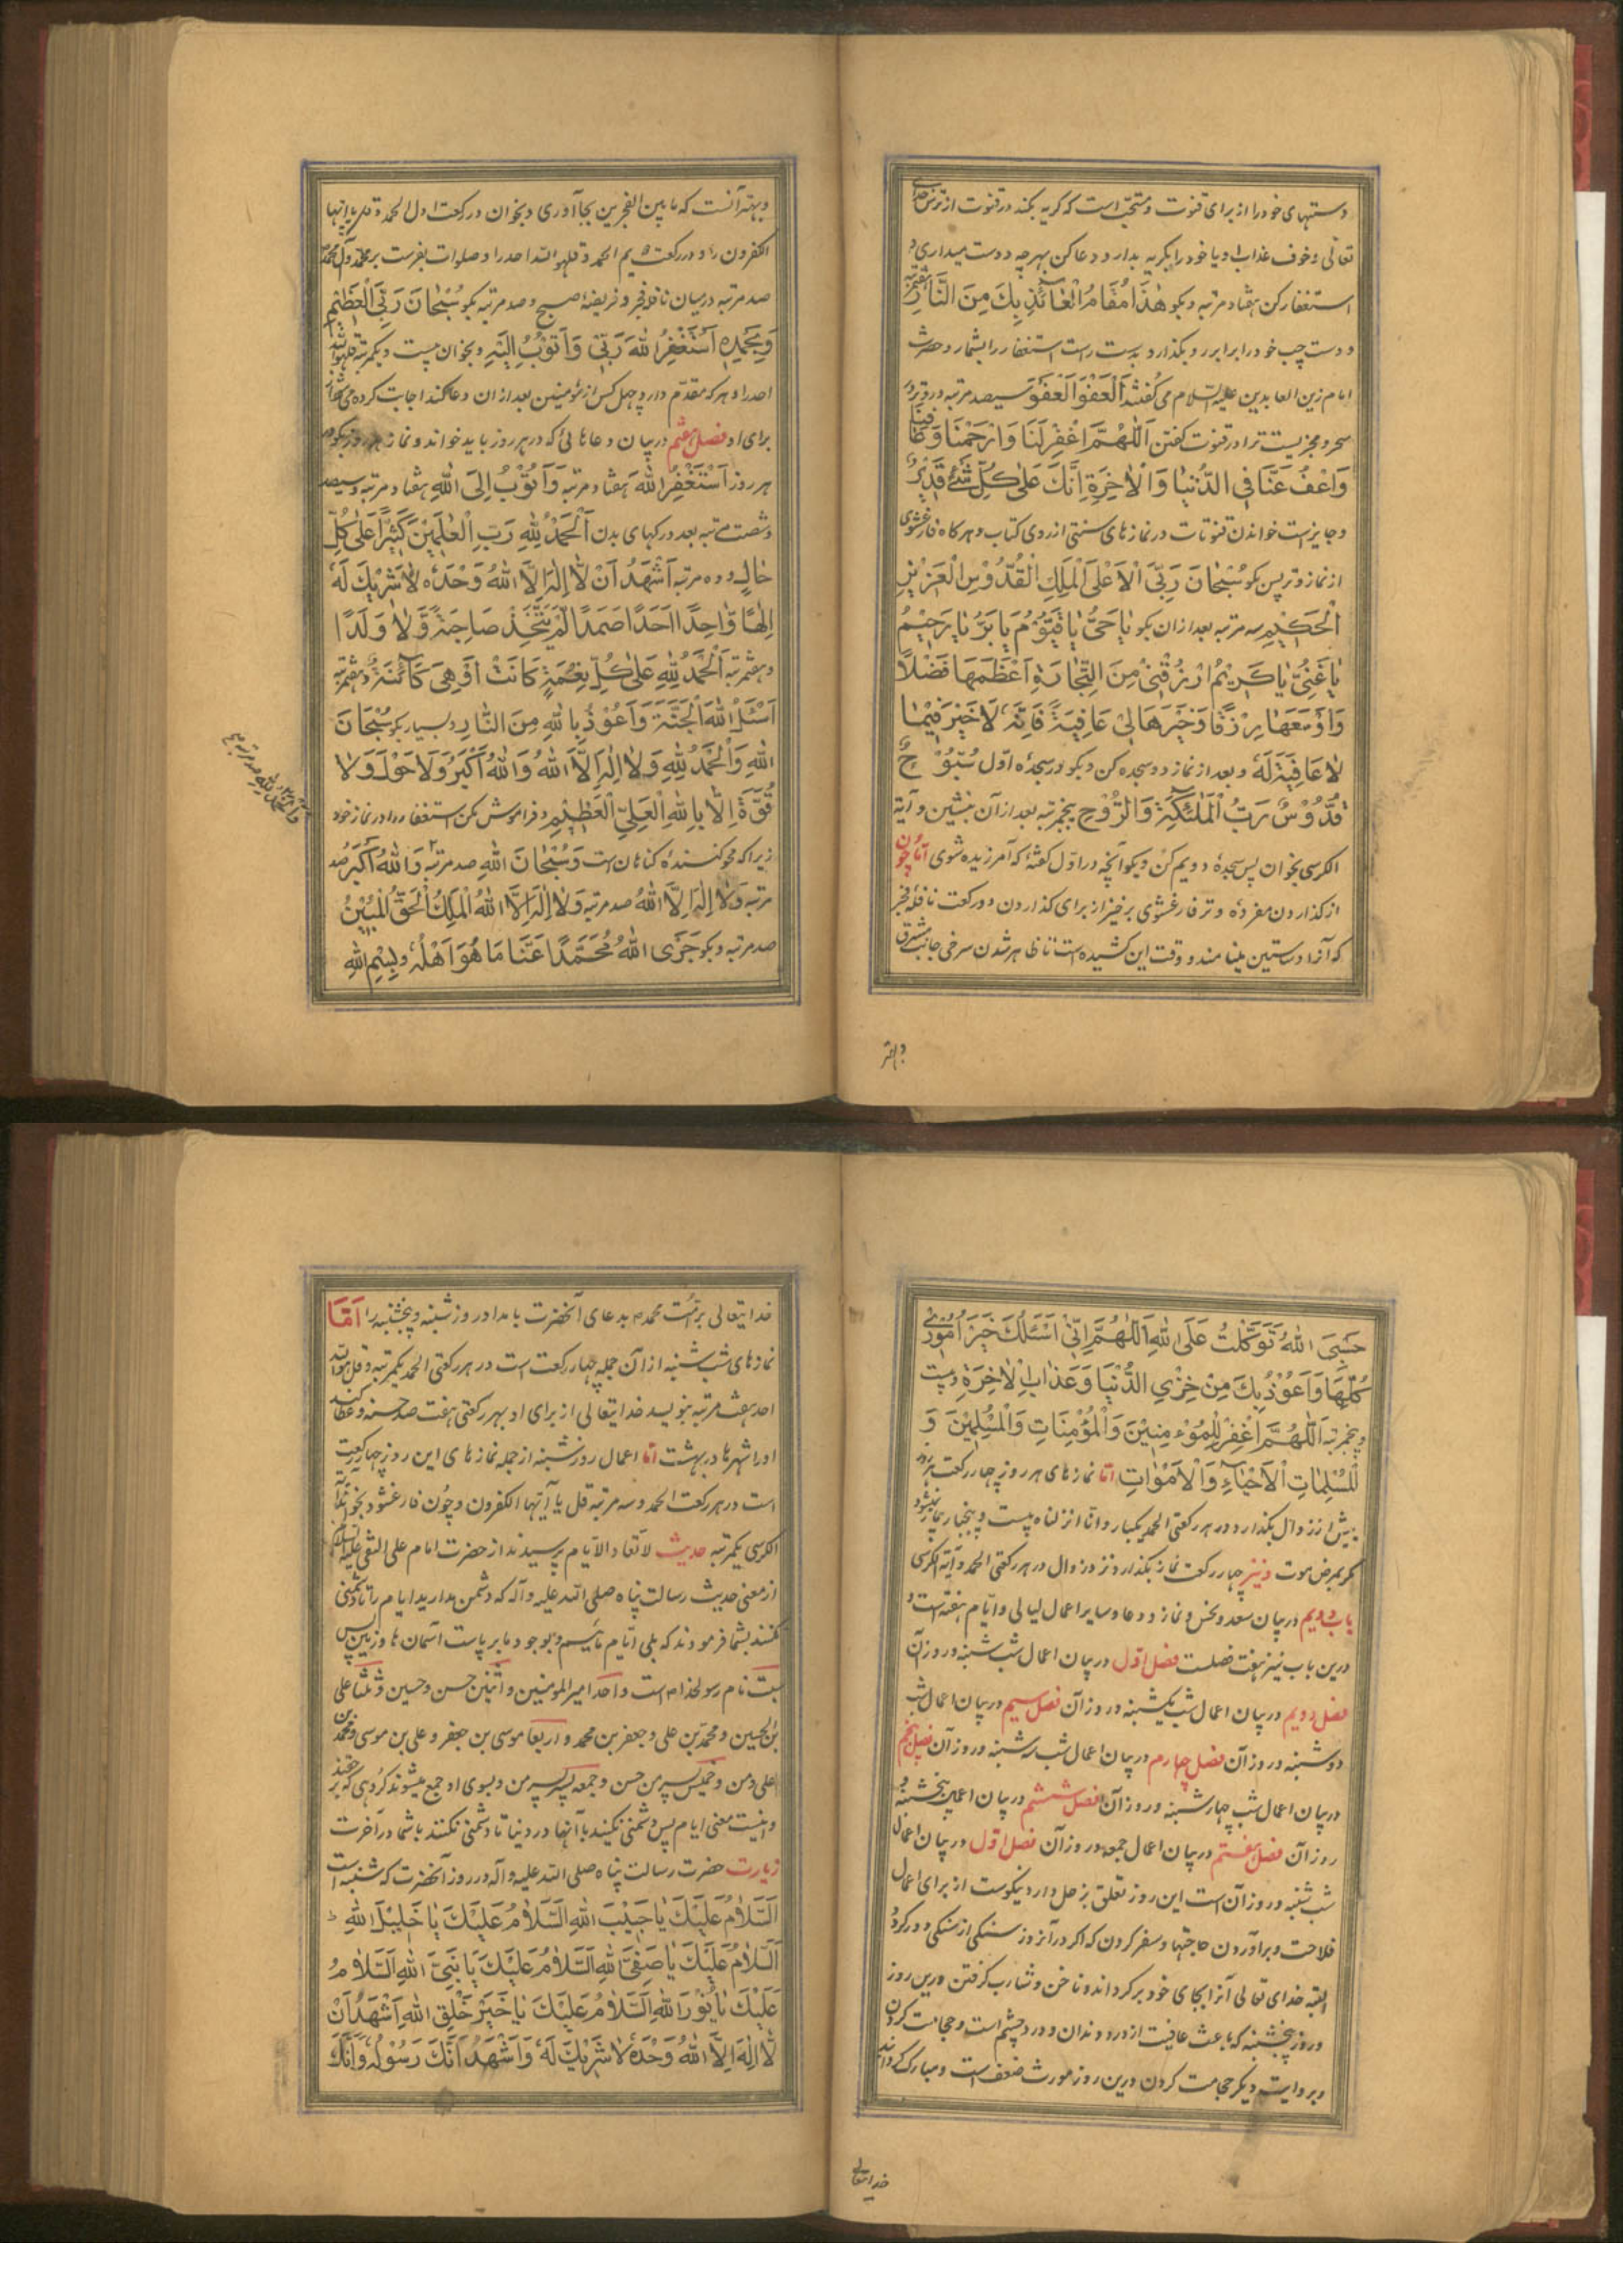 دستهای خود را از برای قنوت و مستحب است که گریه بکند در قنوت از ترس خدای
تعالی و خوف عذاب او یا خود را بگریه بدارد و دعا کن بهر چه دوست میداری و
استغفار کن هفتاد مرتبه و بگو هٰذَا مَقَامُ الْعَائِذِ بِكَ مِنَ النَّارِ هفتمرتبه
و دست چپ خود را برابر رو بگذارد و بدست راست استغفار را بشمارد و حضرت
امام زین العابدین علیه السلام می گفتند اَلْعَفْوَ اَلْعَفْوَ سیصد مرتبه در وتر در
سحر و مجزیست ترا در قنوت گفتن اَللّٰهُمَّ اغْفِرْ لَنَا وَارْحَمْنَا وَعَافِنَا
وَاعْفُ عَنَّا فِي الدُّنْيَا وَالْاٰخِرَةِ اِنَّكَ عَلٰى كُلِّ شَيْءٍ قَدِيْرٌ
و جایز است خواندن قنوتات در نمازهای سنتی از روی کتاب و هر کاه فارغ شوی
از نماز وتر پس بگو سُبْحَانَ رَبِّيَ الْاَعْلَى الْمَلِكِ الْقُدُّوْسِ الْعَزِيْزِ
الْحَكِيْمِ سه مرتبه بعد از ان بگو يَا حَيُّ يَا قَيُّوْمُ يَا بَرُّ يَا رَحِيْمُ
يَا غَنِيُّ يَا كَرِيْمُ ارْزُقْنِيْ مِنَ التِّجَارَةِ اَعْظَمَهَا فَضْلًا
وَاَوْسَعَهَا رِزْقًا وَخَيْرَهَا لِيْ عَافِيَةً فَاِنَّهٗ لَا خَيْرَ فِيْمَا
لَا عَافِيَةَ لَهٗ و بعد از نماز دو سجده کن و بگو در سجدهٔ اول سُبُّوْحٌ
قُدُّوْسٌ رَبُّ الْمَلٰئِكَةِ وَالرُّوْحِ پنجمرتبه بعد از آن بنشین و آیة
الکرسی بخوان پس سجدهٔ دویم کن و بگو آنچه در اول گفتهٔ که آمرزیده شوی اَمّا چون
از گذاردن مفردهٔ وتر فارغ شوی برخیز از برای گذاردن دو رکعت نافلهٔ فجر
که آنرا دساستین مینامند و وقت این کشیده است تا ظاهر شدن سرخی جانب مشرق
و بهتر
و بهتر آنست که ما بین الفجرین بجا آوری و بخوان در رکعت اول الحمد و قل یا ایها
الکفرون را و در رکعت دیم الحمد و قل هو الله احد را و صلوات بفرست بر محمد و آل محمد
صد مرتبه در میان نافلهٔ فجر و فریضهٔ صبح و صد مرتبه بگو سُبْحَانَ رَبِّيَ الْعَظِيْمِ
وَبِحَمْدِهٖ اَسْتَغْفِرُ اللهَ رَبِّيْ وَاَتُوْبُ اِلَيْهِ و بخوان بیست و یکمرتبه قل هو الله
احد را و هر که مقدم دارد چهل کس از مؤمنین بعد از ان دعا کند اجابت کرده می شود
برای او فصل هشتم در بیان دعاهائی که در هر روز باید خواند و نماز هر روز بگو در
هر روز اَسْتَغْفِرُ اللهَ هفتاد مرتبه وَاَتُوْبُ اِلَى اللهِ هفتاد مرتبه و سیصد
و شصت مرتبه بعدد رکهای بدن اَلْحَمْدُ لِلّٰهِ رَبِّ الْعٰلَمِيْنَ كَثِيْرًا عَلٰى كُلِّ
حَالٍ و ده مرتبه اَشْهَدُ اَنْ لَّا اِلٰهَ اِلَّا اللهُ وَحْدَهٗ لَا شَرِيْكَ لَهٗ
اِلٰهًا وَّاحِدًا اَحَدًا صَمَدًا لَمْ يَتَّخِذْ صَاحِبَةً وَّلَا وَلَدًا
و هفتمرتبه اَلْحَمْدُ لِلّٰهِ عَلٰى كُلِّ نِعْمَةٍ كَانَتْ اَوْ هِيَ كَائِنَةٌ و هفتمرتبه
اَسْئَلُ اللهَ الْجَنَّةَ وَاَعُوْذُ بِاللهِ مِنَ النَّارِ و بسیار بگو سُبْحَانَ
اللهِ وَالْحَمْدُ لِلّٰهِ وَلَا اِلٰهَ اِلَّا اللهُ وَاللهُ اَكْبَرُ وَلَا حَوْلَ وَلَا
قُوَّةَ اِلَّا بِاللهِ الْعَلِيِّ الْعَظِيْمِ و فراموش مکن استغفار را در نماز خود
زیرا که محو کنندهٔ گناهان است وَسُبْحَانَ اللهِ صد مرتبه وَاللهُ اَكْبَرُ صد
مرتبه وَلَا اِلٰهَ اِلَّا اللهُ صد مرتبه وَلَا اِلٰهَ اِلَّا اللهُ الْمَلِكُ الْحَقُّ الْمُبِيْنُ
صد مرتبه و بگو جَزَى اللهُ مُحَمَّدًا عَنَّا مَا هُوَ اَهْلُهٗ و بِسْمِ اللهِ
وَالْحَمْدُ لِلّٰهِ صد مرتبه
حَسْبِيَ اللهُ تَوَكَّلْتُ عَلَى اللهِ اَللّٰهُمَّ اِنِّيْ اَسْئَلُكَ خَيْرَ اُمُوْرِيْ
كُلِّهَا وَاَعُوْذُ بِكَ مِنْ خِزْيِ الدُّنْيَا وَعَذَابِ الْاٰخِرَةِ و بیست
و پنجمرتبه اَللّٰهُمَّ اغْفِرْ لِلْمُؤْمِنِيْنَ وَالْمُؤْمِنَاتِ وَالْمُسْلِمِيْنَ وَ
الْمُسْلِمَاتِ الْاَحْيَاءِ وَالْاَمْوَاتِ اما نمازهای هر روز چهار رکعت هر روز
پیش از زوال بگذارد و در هر رکعتی الحمد یکبار و انا انزلناه بیست و پنجبار بیمار نمیشود
مگر بمرض موت و نیز چهار رکعت نماز بگذارد نزد زوال در هر رکعتی الحمد و آیة الکرسی
باب دویم در بیان سعد و نحس و نماز و دعا و سایر اعمال لیالی و ایام هفته است و
درین باب نیز هفت فصلست فصل اول در بیان اعمال شب شنبه و روز آن
فصل دویم در بیان اعمال شب یکشنبه و روز آن فصل سیم در بیان اعمال شب
دوشنبه و روز آن فصل چهارم در بیان اعمال شب سه شنبه و روز آن فصل پنجم
در بیان اعمال شب چهارشنبه و روز آن فصل ششم در بیان اعمال پنجشنبه و
روز آن فصل هفتم در بیان اعمال جمعه و روز آن فصل اول در بیان اعمال
شب شنبه و روز آن است این روز تعلق بزحل دارد نیکوست از برای اعمال
فلاحت و برآوردن حاجتها و سفر کردن که اکر در آنروز سنگی از سنگی دور گردد
البته خدای تعالی آنرا بجای خود برگرداند و ناخن و شارب گرفتن درین روز
و روز پنجشنبه که باعث عافیت از درد دندان و درد چشم است و حجامت کردن
و بروایت دیگر حجامت کردن درین روز مورث ضعف است و مبارک گرداند
خدایتعالی
خدایتعالی بر امت محمد بدعای آنحضرت بامداد روز شنبه و پنجشنبه را اَمَّا
نمازهای شب شنبه از آن جمله چهار رکعت است در هر رکعتی الحمد یکمرتبه و قل هو الله
احد هفت مرتبه بنویسد خدایتعالی از برای او بهر رکعتی هفت صد حسنه و عطا کند
او را شهرها در بهشت اما اعمال روز شنبه از جمله نمازهای این روز چهار رکعت
است در هر رکعت الحمد و سه مرتبه قل یا آیها الکفرون و چون فارغ شود بخواند آیة
الکرسی یکمرتبه حدیث لا تعاد الایام پرسیدند از حضرت امام علی النقی علیه السلام
از معنی حدیث رسالت پناه صلی الله علیه وآله که دشمن مدارید ایام را تا دشمنی
نکنند بشما فرمودند که بلی ایام مائیم و بوجود ما برپاست آسمان ها و زمین پس
سبت نام رسولخدا است و احد امیرالمومنین و اثنین حسن و حسین و ثلثا علی
بن الحسین و محمد بن علی و جعفر بن محمد و اربعا موسی بن جعفر و علی بن موسی و محمد بن
علی و من و خمیس پسر من حسن و جمعه پسر پسر من و بسوی او جمع میشوند گروهی که بر حقند
و اینست معنی ایام پس دشمنی نکنید بآنها در دنیا تا دشمنی نکنند باشما در آخرت
زیارت حضرت رسالت پناه صلی الله علیه وآله در روز آنحضرت که شنبه است
اَلسَّلَامُ عَلَيْكَ يَا حَبِيْبَ اللهِ اَلسَّلَامُ عَلَيْكَ يَا خَلِيْلَ اللهِ
اَلسَّلَامُ عَلَيْكَ يَا صَفِيَّ اللهِ اَلسَّلَامُ عَلَيْكَ يَا نَبِيَّ اللهِ اَلسَّلَامُ
عَلَيْكَ يَا نُوْرَ اللهِ اَلسَّلَامُ عَلَيْكَ يَا خَيْرَ خَلْقِ اللهِ اَشْهَدُ اَنْ
لَّا اِلٰهَ اِلَّا اللهُ وَحْدَهٗ لَا شَرِيْكَ لَهٗ وَاَشْهَدُ اَنَّكَ رَسُوْلُهٗ وَاَنَّكَ